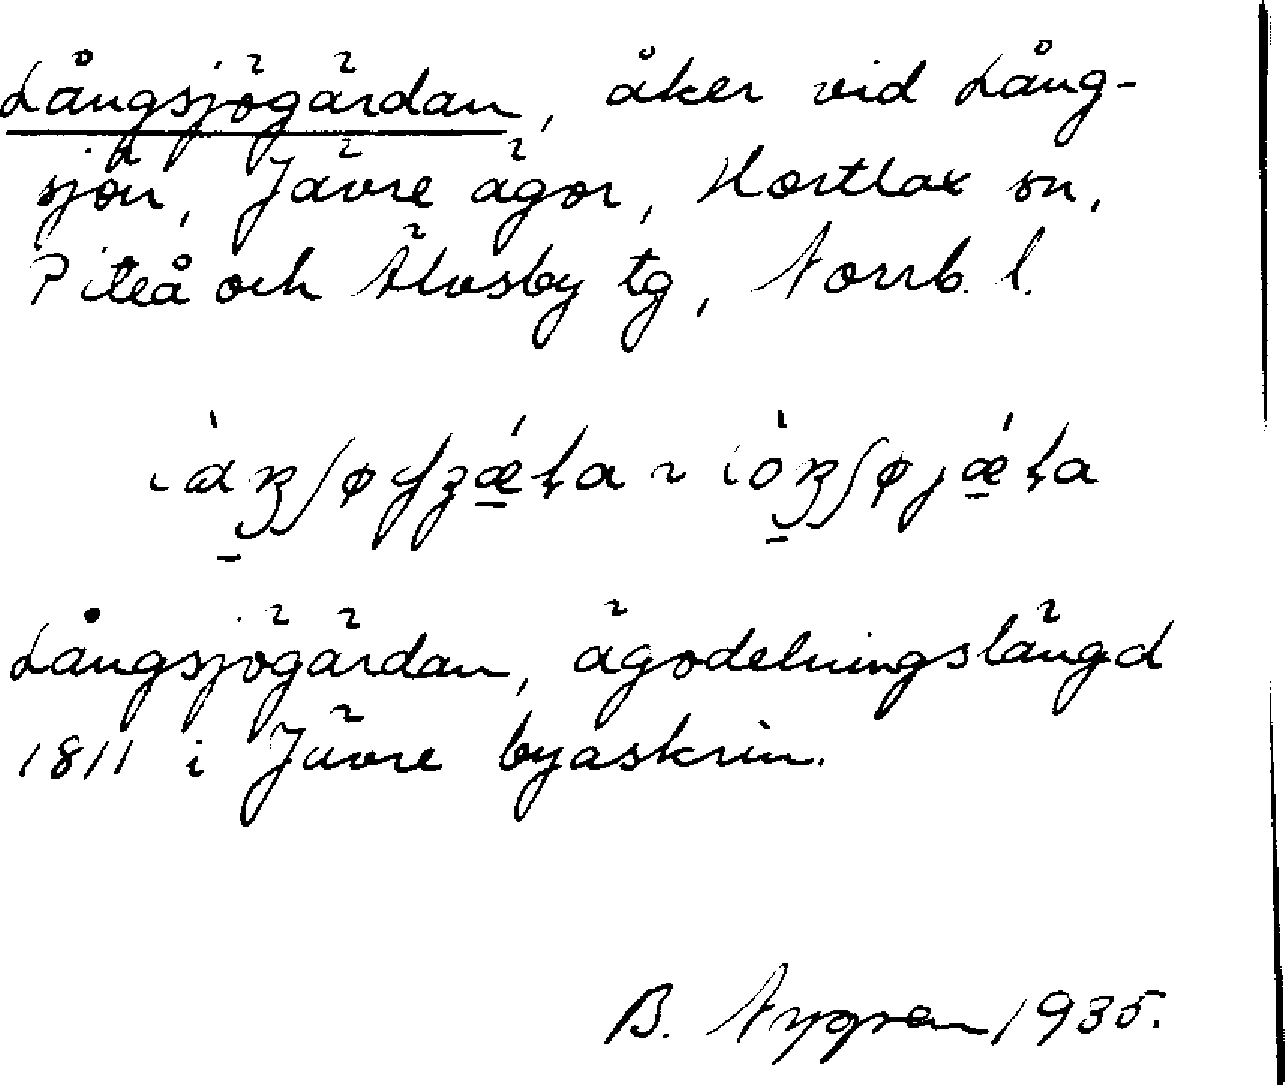 Långsjögärdan, åker vid Lång-
sjön, Jävre ägor, Hortlax sn,
Piteå och Älvsby tg, Norrb. l.
Långsjögärdan, ägodelningslängd
1811 i Jävre byaskrin.
B. Nygren 1935.